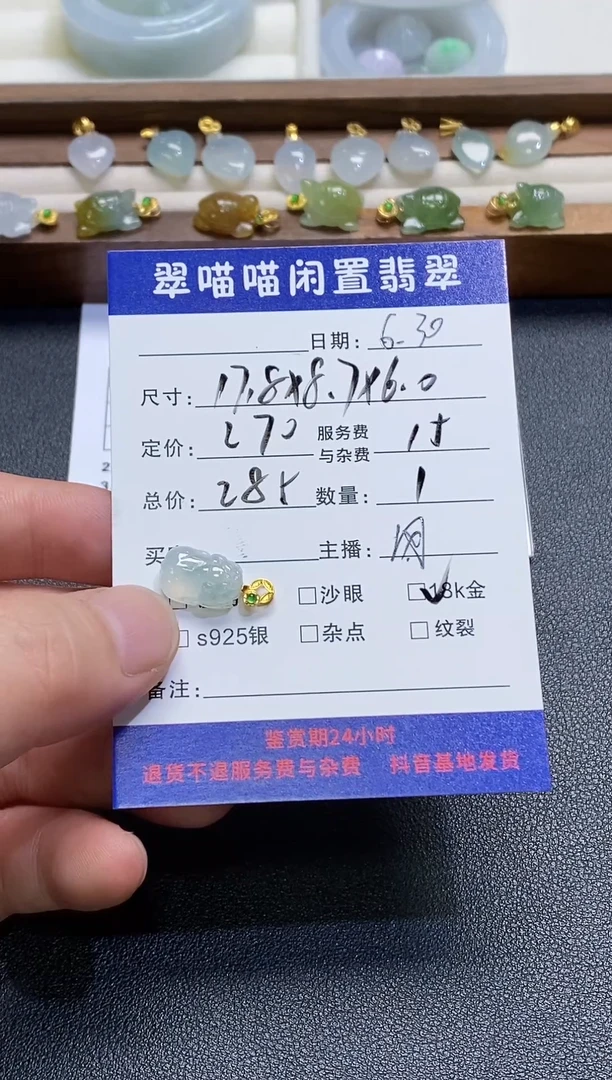 翠喵喵闲置翡翠
日期: 6.30
尺寸: 17.8x8.7x6.0
定价: 270 服务费与杂费 15
总价: 285 数量: 1
买 主播:
□沙眼 □18k金
□s925银 □杂点 □纹裂
备注:
鉴赏期24小时
退货不退服务费与杂费 抖音基地发货
2
3